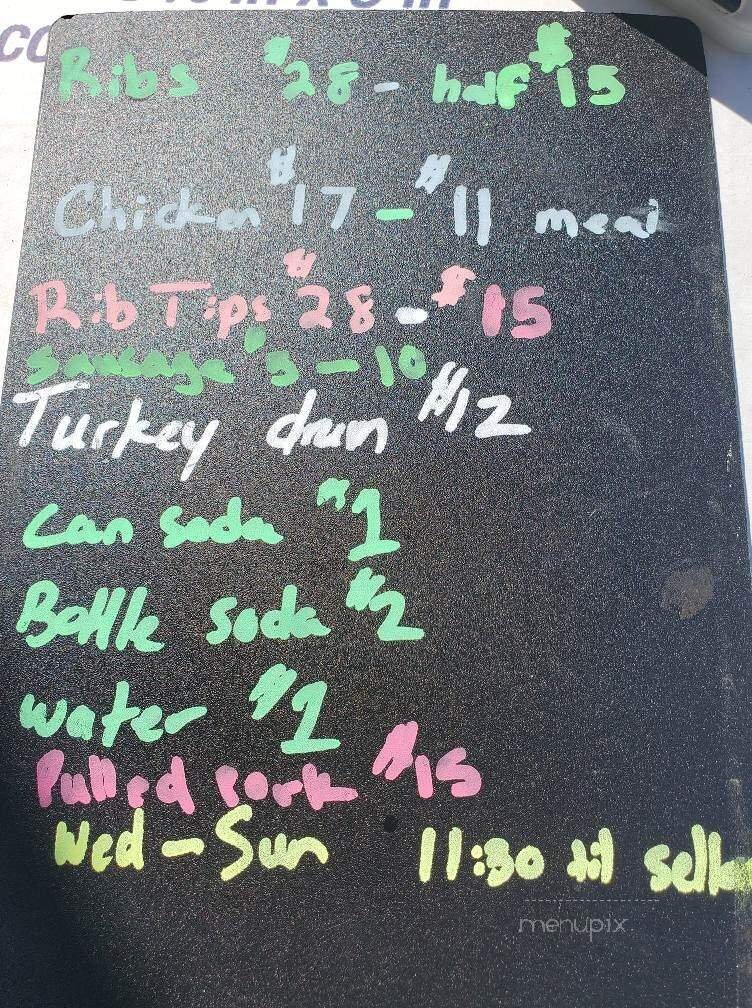 Ribs $28 - half $15
Chicken $17 - $11 meal
Rib Tips $28 - $15
Sausage $5 - 10
Turkey drum $12
Can soda $1
Bottle soda $2
water $1
Pulled pork $15
Wed - Sun 11:30 til
menupix